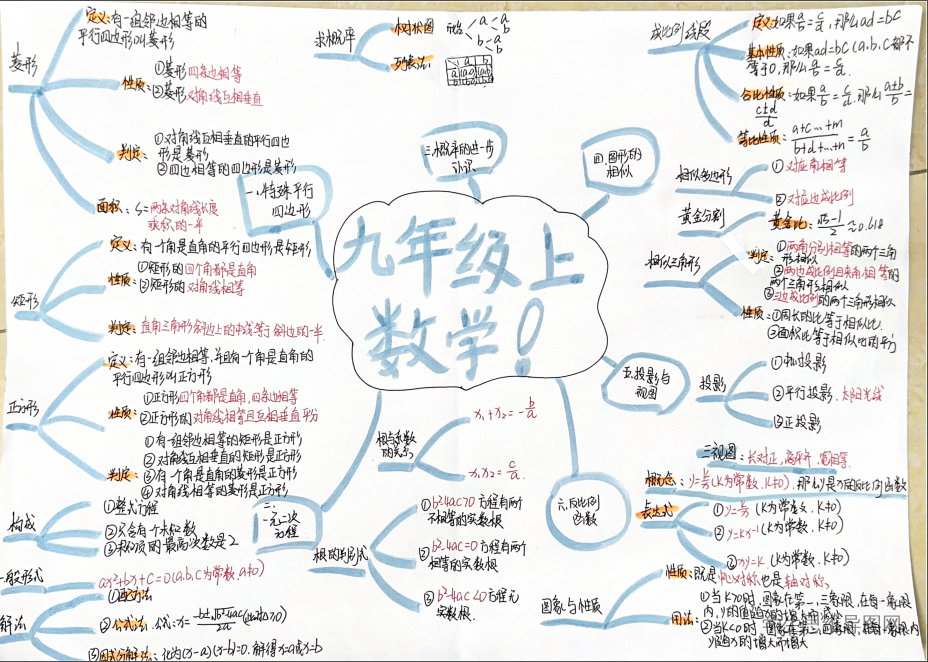 九年级上
数学!
一、特殊平行
四边形
菱形
定义:有一组邻边相等的
平行四边形叫菱形
性质:①菱形四条边相等
②菱形对角线互相垂直
判定:①对角线互相垂直的平行四边
形是菱形
②四边相等的四边形是菱形
面积:S=两条对角线长度
乘积的一半
矩形
定义:有一个角是直角的平行四边形是矩形
性质:①矩形的四个角都是直角
②矩形的对角线相等
判定:直角三角形斜边上的中线等于斜边的一半.
正方形
定义:有一组邻边相等,并且有一个角是直角的
平行四边形叫正方形
性质:①正方形四个角都是直角,四条边相等
②正方形的对角线相等且互相垂直平分
判定:①有一组邻边相等的矩形是正方形
②对角线互相垂直的矩形是正方形
③有一个角是直角的菱形是正方形
④对角线相等的菱形是正方形
二、
一元二次
方程
构成
①整式方程
②只含有一个未知数
③未知项的最高次数是2
一般形式
ax²+bx+c=0(a,b,c为常数,a≠0)
解法
①配方法
②公式法
③因式分解法:化为(x-a)(x-b)=0.解得x=a或x=b
根与系数
的关系
x₁+x₂=-b/a
x₁x₂=c/a.
根的判别式
①b²-4ac>0方程有两个
不相等的实数根
②b²-4ac=0方程有两个
相等的实数根
③b²-4ac<0方程无
实数根.
三、概率的进一步
认识
求概率
树状图
开始
a
a
b
b
a
b
列表法:
四、图形的
相似
成比例线段
定义:如果a/b=c/d,那么ad=bc
基本性质:如果ad=bc(a,b,c都不
等于0,那么a/b=c/d.
合比性质:如果a/b=c/d,那么(a±b)/b=
(c±d)/d
等比性质:(a+c…+m)/(b+d+…+n)=a/b
相似多边形
①对应角相等
②对应边成比例
黄金分割
黄金比:(√5-1)/2≈0.618
相似三角形
判定:①两角分别相等的两个三角
形相似
②两边成比例且夹角相等的
两个三角形相似
③三边成比例的两个三角形相似
性质:①周长的比等于相似比.
②面积比等于相似比的平方
五、投影与
视图
投影
①中心投影
②平行投影,太阳光线
③正投影
三视图:长对正,高平齐,宽相等.
六、反比例
函数
概念:y=k/x(k为常数,k≠0).那么y是x的反比例函数
表达式
①y=k/x(k为常数,k≠0)
②y=kx⁻¹(k为常数,k≠0)
③xy=k(k为常数,k≠0)
图象与性质
性质:既是中心对称也是轴对称,
用法:①当k>0时,图象在第一、三象限,在每一象限
内,y的值随x的增大而减小
②当k<0时,图象在第二、四象限,在每一象限内
y随x的增大而增大